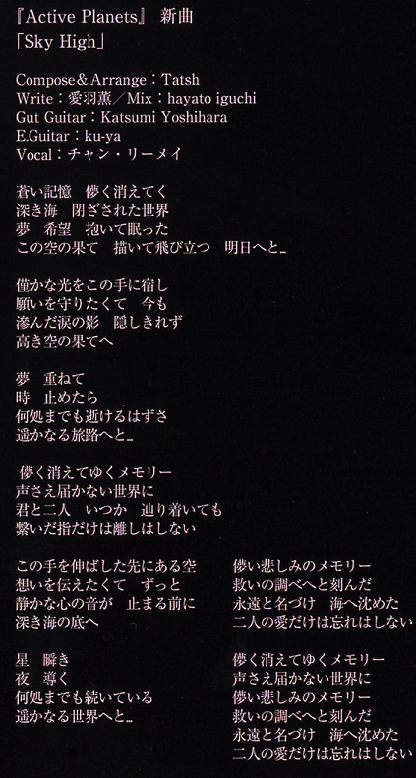 『Active Planets』 新曲
「Sky High」
Compose&Arrange：Tatsh
Write：愛羽薫／Mix：hayato iguchi
Gut Guitar：Katsumi Yoshihara
E.Guitar：ku-ya
Vocal：チャン・リーメイ
蒼い記憶　儚く消えてく
深き海　閉ざされた世界
夢　希望　抱いて眠った
この空の果て　描いて飛び立つ　明日へと…
僅かな光をこの手に宿し
願いを守りたくて　今も
滲んだ涙の影　隠しきれず
高き空の果てへ
夢　重ねて
時　止めたら
何処までも逝けるはずさ
遥かなる旅路へと…
儚く消えてゆくメモリー
声さえ届かない世界に
君と二人　いつか　辿り着いても
繋いだ指だけは離しはしない
この手を伸ばした先にある空
想いを伝えたくて　ずっと
静かな心の音が　止まる前に
深き海の底へ
星　瞬き
夜　導く
何処までも続いている
遥かなる世界へと…
儚い悲しみのメモリー
救いの調べへと刻んだ
永遠と名づけ　海へ沈めた
二人の愛だけは忘れはしない
儚く消えてゆくメモリー
声さえ届かない世界に
儚い悲しみのメモリー
救いの調べへと刻んだ
永遠と名づけ　海へ沈めた
二人の愛だけは忘れはしない